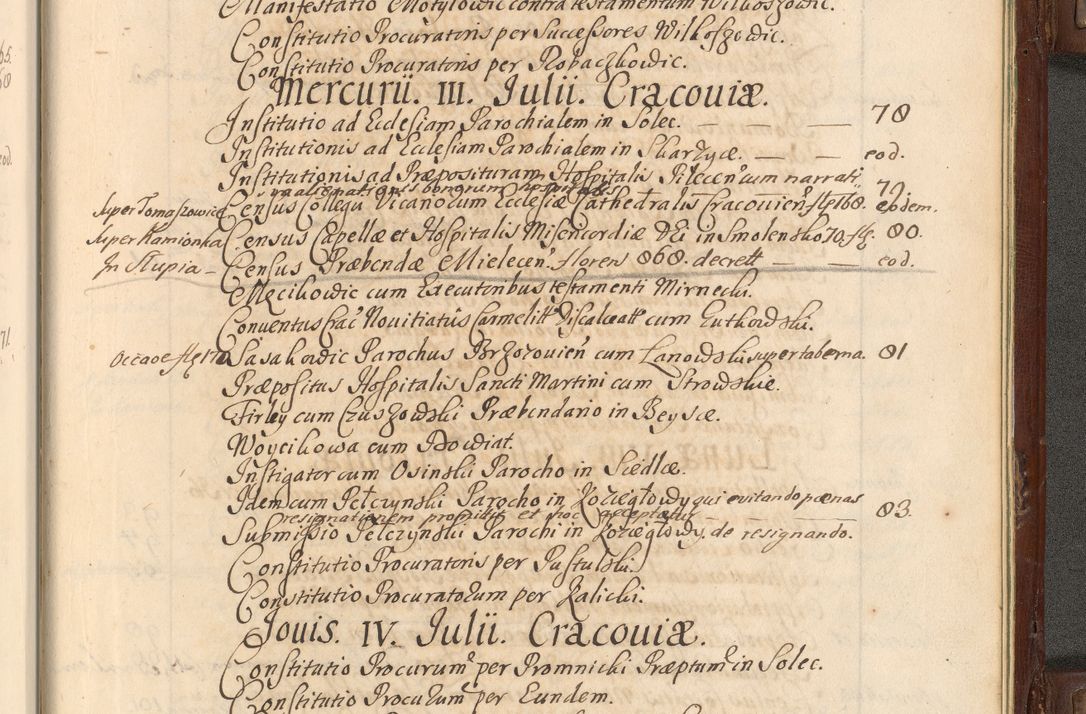 Manifestatio Motylowic contra testamentum Wilkoszowic.
Constitutio Procuratoris per Successores Wilkoszowic.
Constitutio Procuratoris per Robaczkowic.
Mercurii. III. Julii. Cracoviæ.
Institutio ad Ecclesiam Parochialem in Solec. — — — 78
Institutionis ad Ecclesiam Parochialem in Skarżyce. — — eod.
Institutionis ad Præposituram Hospitalis Pilecen cum narrati
onalienationis bonorum hospitalis 79.
Super Tomaszowice Census Collegii Vicariorum Ecclesiæ Cathedralis Cracovien. flg 168. eodem.
Super Kamionka Census Capellæ et Hospitalis Misericordiæ DEi in Smolensko 70. flg. 80.
In Słupia – Census Præbendæ Mielecen. floren 868. decrett — — eod.
Męcikowic cum Executoribus testamenti Mirnecki.
Conventus Crac. Novitiatus Carmelitt. Discalceatt. cum Gutkowski.
Occaoe flg 170 Sasakowic Parochus Brzozovien cum Łanowski super taberna. 81
Præpositus Hospitalis Sancti Martini cum Strowskie.
Firley cum Czuszowski Præbendario in Beysce.
Woycikowa cum Bowdiat.
Instigator cum Osinskii Parocho in Siedlce.
Idem cum Pełczynski Parocho in Koziegłowy qui evitando pœnas
resignationem promittit et hoc acceptatur — — — 83.
Submissio Pełczynskii Parochi in Koziegłowy, de resignando.
Constitutio Procuratoris per Pustulski.
Constitutio Procuratorum per Kalicki.
Jovis. IV. Julii. Cracoviæ.
Constitutio Procurum per Promnicki Præptum in Solec.
Constitutio Procurum per Eundem.
65.
68
eod.
71.